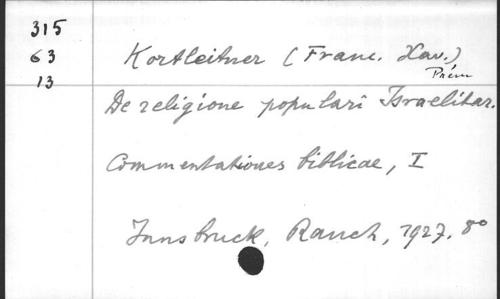 315
63
13
Kortleitner (Franc. Xav.)
Prém
De religione populari Israelitar.
Commentationes biblicae, I
Innsbruck, Rauch, 1927. 8°